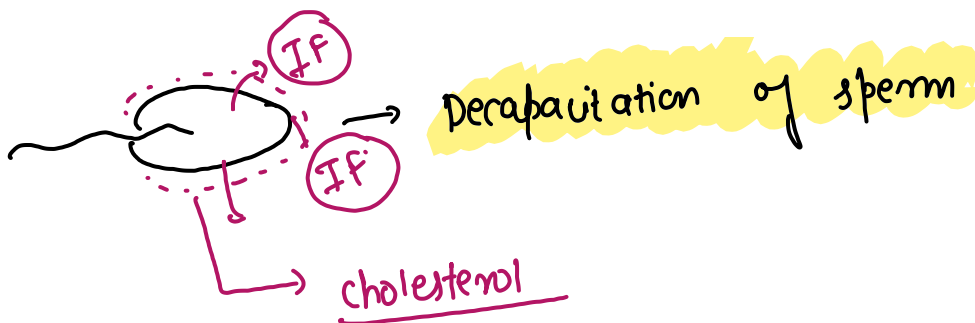 If
Decapacitation of sperm
If
cholesterol